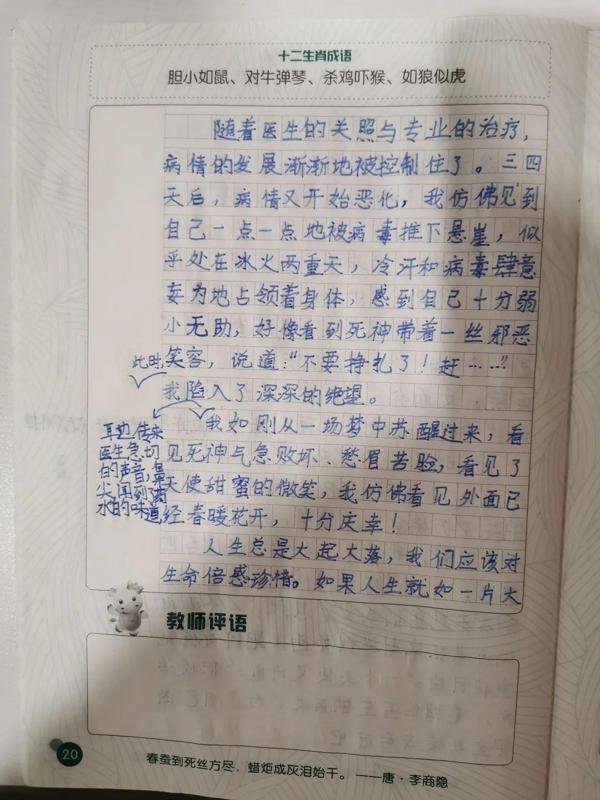 十二生肖成语
胆小如鼠、对牛弹琴、杀鸡吓猴、如狼似虎
随着医生的关照与专业的治疗，
病情的发展渐渐地被控制住了。三四
天后，病情又开始恶化，我仿佛见到
自己一点一点地被病毒推下悬崖，似
乎处在冰火两重天，冷汗和病毒肆意
妄为地占领着身体，感到自己十分弱
小无助，好像看到死神带着一丝邪恶
笑容，说道：“不要挣扎了！赶……”
此时，
我陷入了深深的绝望。
耳边传来
医生急切
的声音，鼻
尖闻到药
水的味道
我如刚从一场梦中苏醒过来，看
见死神气急败坏、愁眉苦脸，看见了
天使甜蜜的微笑，我仿佛看见外面已
经春暖花开，十分庆幸！
人生总是大起大落，我们应该对
生命倍感珍惜。如果人生就如一片大
教师评语
20
春蚕到死丝方尽，蜡炬成灰泪始干。 ——唐·李商隐